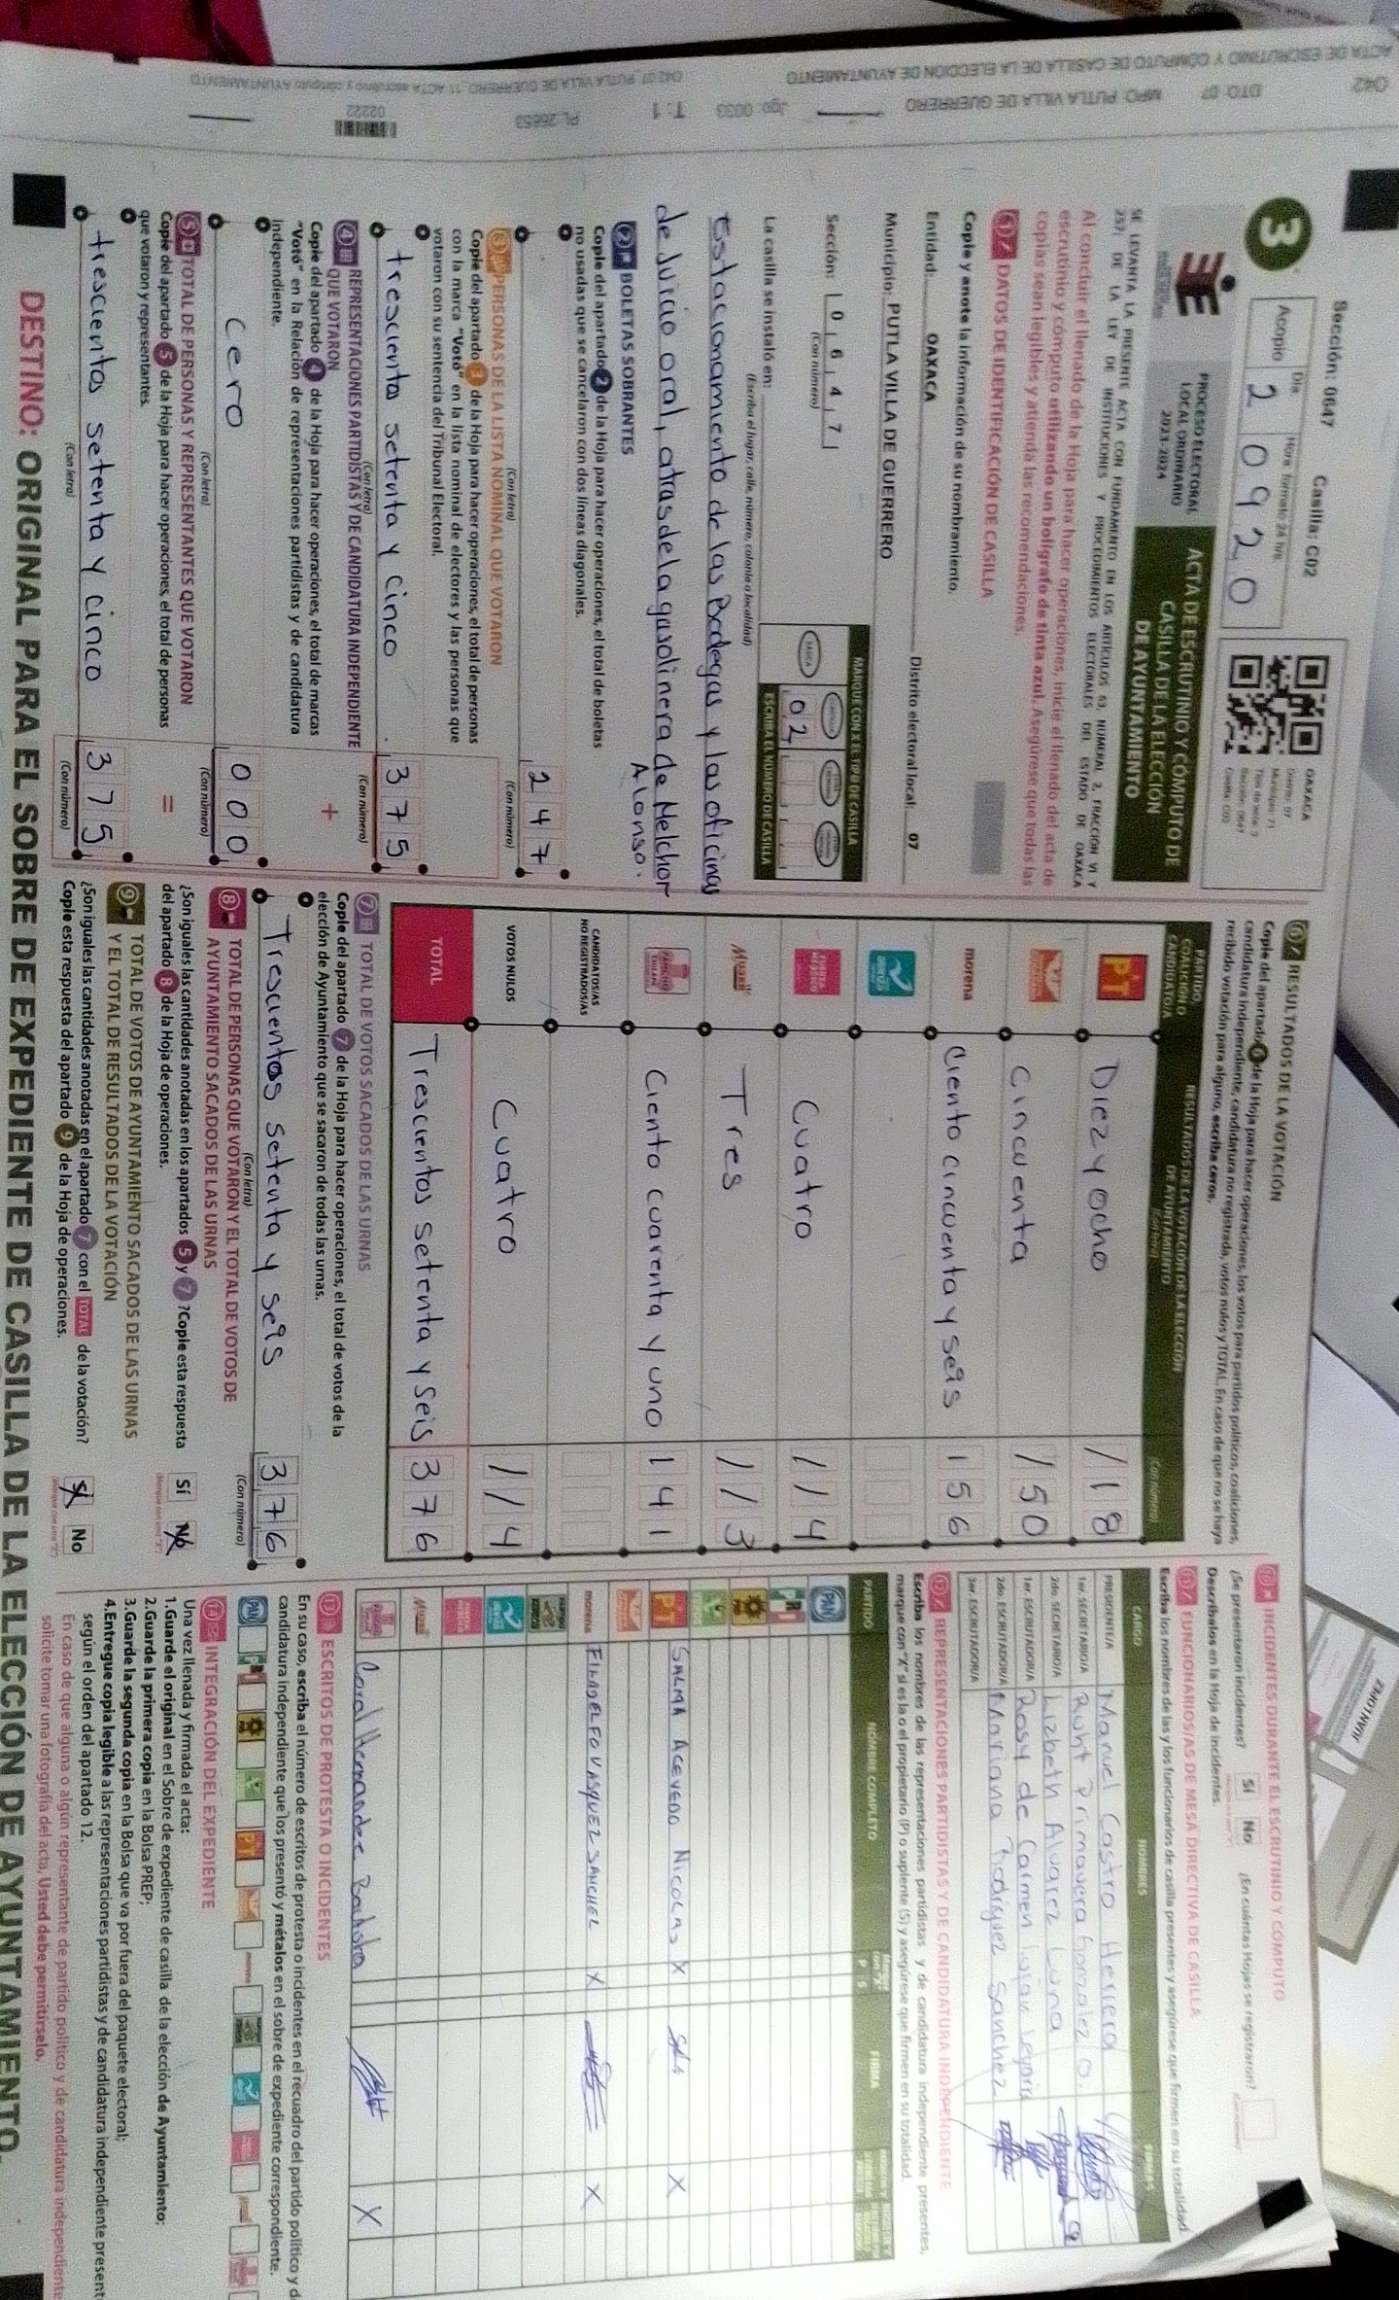 Sección: 0647 Casilla: C02
3
Día
Hora: formato 24 hrs.
Acopio 2 0 9 2 0
OAXACA
Distrito: 07
Municipio: 71
Sección: 0647
Casilla: C02
PROCESO ELECTORAL
LOCAL ORDINARIO
2023-2024
ACTA DE ESCRUTINIO Y CÓMPUTO DE
CASILLA DE LA ELECCIÓN
DE AYUNTAMIENTO
SE LEVANTA LA PRESENTE ACTA CON FUNDAMENTO EN LOS ARTÍCULOS 63, NUMERAL 2, FRACCIÓN VI Y
257; DE LA LEY DE INSTITUCIONES Y PROCEDIMIENTOS ELECTORALES DEL ESTADO DE OAXACA
Al concluir el llenado de la Hoja para hacer operaciones, inicie el llenado del acta de
escrutinio y cómputo utilizando un bolígrafo de tinta azul. Asegúrese que todas las
copias sean legibles y atienda las recomendaciones.
1 DATOS DE IDENTIFICACIÓN DE CASILLA
Copie y anote la información de su nombramiento.
Entidad: OAXACA Distrito electoral local: 07
Municipio: PUTLA VILLA DE GUERRERO
Sección: 0 6 4 7
(Con número)
MARQUE CON X EL TIPO DE CASILLA
BÁSICA
02
ESCRIBA EL NÚMERO DE CASILLA
La casilla se instaló en:
(Escriba el lugar, calle, número, colonia o localidad)
Estacionamiento de las Bodegas y las oficinas
de Juicio oral, atras de la gasolinera de Melchor
Alonso.
2 BOLETAS SOBRANTES
Copie del apartado 2 de la Hoja para hacer operaciones, el total de boletas
no usadas que se cancelaron con dos líneas diagonales.
2 4 7
(Con letra) (Con número)
3 PERSONAS DE LA LISTA NOMINAL QUE VOTARON
Copie del apartado 3 de la Hoja para hacer operaciones, el total de personas
con la marca "Votó" en la lista nominal de electores y las personas que
votaron con su sentencia del Tribunal Electoral.
trescientos setenta y cinco 3 7 5
(Con letra) (Con número)
4 REPRESENTACIONES PARTIDISTAS Y DE CANDIDATURA INDEPENDIENTE
QUE VOTARON +
Copie del apartado 4 de la Hoja para hacer operaciones, el total de marcas
"Votó" en la Relación de representaciones partidistas y de candidatura
independiente.
Cero 0 0 0
(Con letra) (Con número)
5 TOTAL DE PERSONAS Y REPRESENTANTES QUE VOTARON =
Copie del apartado 5 de la Hoja para hacer operaciones, el total de personas
que votaron y representantes.
trescientos setenta y cinco 3 7 5
(Con letra) (Con número)
6 RESULTADOS DE LA VOTACIÓN
Copie del apartado 6 de la Hoja para hacer operaciones, los votos para partidos políticos, coaliciones,
candidatura independiente, candidatura no registrada, votos nulos y TOTAL. En caso de que no se haya
recibido votación para alguno, escriba ceros.
PARTIDO, COALICIÓN O CANDIDATO/A
RESULTADOS DE LA VOTACIÓN DE LA ELECCIÓN
DE AYUNTAMIENTO
(Con letra) (Con número)
PT Diez y ocho / 1 8
Cincuenta / 5 0
morena Ciento cincuenta y seis 1 5 6
FUERZA MÉXICO Cuatro / / 4
Mujer Tres / / 3
Ciento cuarenta y uno 1 4 1
CANDIDATOS/AS
NO REGISTRADOS/AS
VOTOS NULOS Cuatro / / 4
TOTAL Trescientos setenta y seis 3 7 6
7 TOTAL DE VOTOS SACADOS DE LAS URNAS
Copie del apartado 7 de la Hoja para hacer operaciones, el total de votos de la
elección de Ayuntamiento que se sacaron de todas las urnas.
Trescientos setenta y seis 3 7 6
(Con letra) (Con número)
8 TOTAL DE PERSONAS QUE VOTARON Y EL TOTAL DE VOTOS DE
AYUNTAMIENTO SACADOS DE LAS URNAS
¿Son iguales las cantidades anotadas en los apartados 5 y 7 ?Copie esta respuesta
del apartado 8 de la Hoja de operaciones. Sí No
9 TOTAL DE VOTOS DE AYUNTAMIENTO SACADOS DE LAS URNAS
Y EL TOTAL DE RESULTADOS DE LA VOTACIÓN
¿Son iguales las cantidades anotadas en el apartado 7 con el TOTAL de la votación?
Copie esta respuesta del apartado 9 de la Hoja de operaciones. Sí No
10 INCIDENTES DURANTE EL ESCRUTINIO Y CÓMPUTO
¿Se presentaron incidentes? Sí No ¿En cuántas Hojas se registraron?
Descríbalos en la Hoja de incidentes.
11 FUNCIONARIOS/AS DE MESA DIRECTIVA DE CASILLA
Escriba los nombres de las y los funcionarios de casilla presentes y asegúrese que firmen en su totalidad.
CARGO NOMBRES FIRMAS
PRESIDENTE/A Manuel Castro Herrera
1er. SECRETARIO/A Ruht Primavera Gonzalez O.
2do. SECRETARIO/A Lizbeth Alvarez Luna
1er. ESCRUTADOR/A Rosy de Carmen
2do. ESCRUTADOR/A Mariana Rodriguez Sanchez
3er. ESCRUTADOR/A
12 REPRESENTACIONES PARTIDISTAS Y DE CANDIDATURA INDEPENDIENTE
Escriba los nombres de las representaciones partidistas y de candidatura independiente presentes,
marque con "X" si es la o el propietario (P) o suplente (S) y asegúrese que firmen en su totalidad.
PARTIDO NOMBRE COMPLETO P S FIRMA
PAN
PT SALMA ACEVEDO NICOLAS X X
morena FILADELFO VASQUEZ SANCHEZ X X
Coral Hernandez X
13 ESCRITOS DE PROTESTA O INCIDENTES
En su caso, escriba el número de escritos de protesta o incidentes en el recuadro del partido político y d
candidatura independiente que los presentó y métalos en el sobre de expediente correspondiente.
14 INTEGRACIÓN DEL EXPEDIENTE
Una vez llenada y firmada el acta:
1.Guarde el original en el Sobre de expediente de casilla de la elección de Ayuntamiento;
2.Guarde la primera copia en la Bolsa PREP;
3.Guarde la segunda copia en la Bolsa que va por fuera del paquete electoral;
4.Entregue copia legible a las representaciones partidistas y de candidatura independiente present
según el orden del apartado 12.
En caso de que alguna o algún representante de partido político y de candidatura independiente
solicite tomar una fotografía del acta, Usted debe permitírselo.
DESTINO: ORIGINAL PARA EL SOBRE DE EXPEDIENTE DE CASILLA DE LA ELECCIÓN DE AYUNTAMIENTO.
ACTA DE ESCRUTINIO Y CÓMPUTO DE CASILLA DE LA ELECCIÓN DE AYUNTAMIENTO
042 DTO: 07 MPO: PUTLA VILLA DE GUERRERO Jgo: 0033 T: 1 PL_26653
042 07_PUTLA VILLA DE GUERRERO_11 ACTA escrutinio y cómputo AYUNTAMIENTO
02222